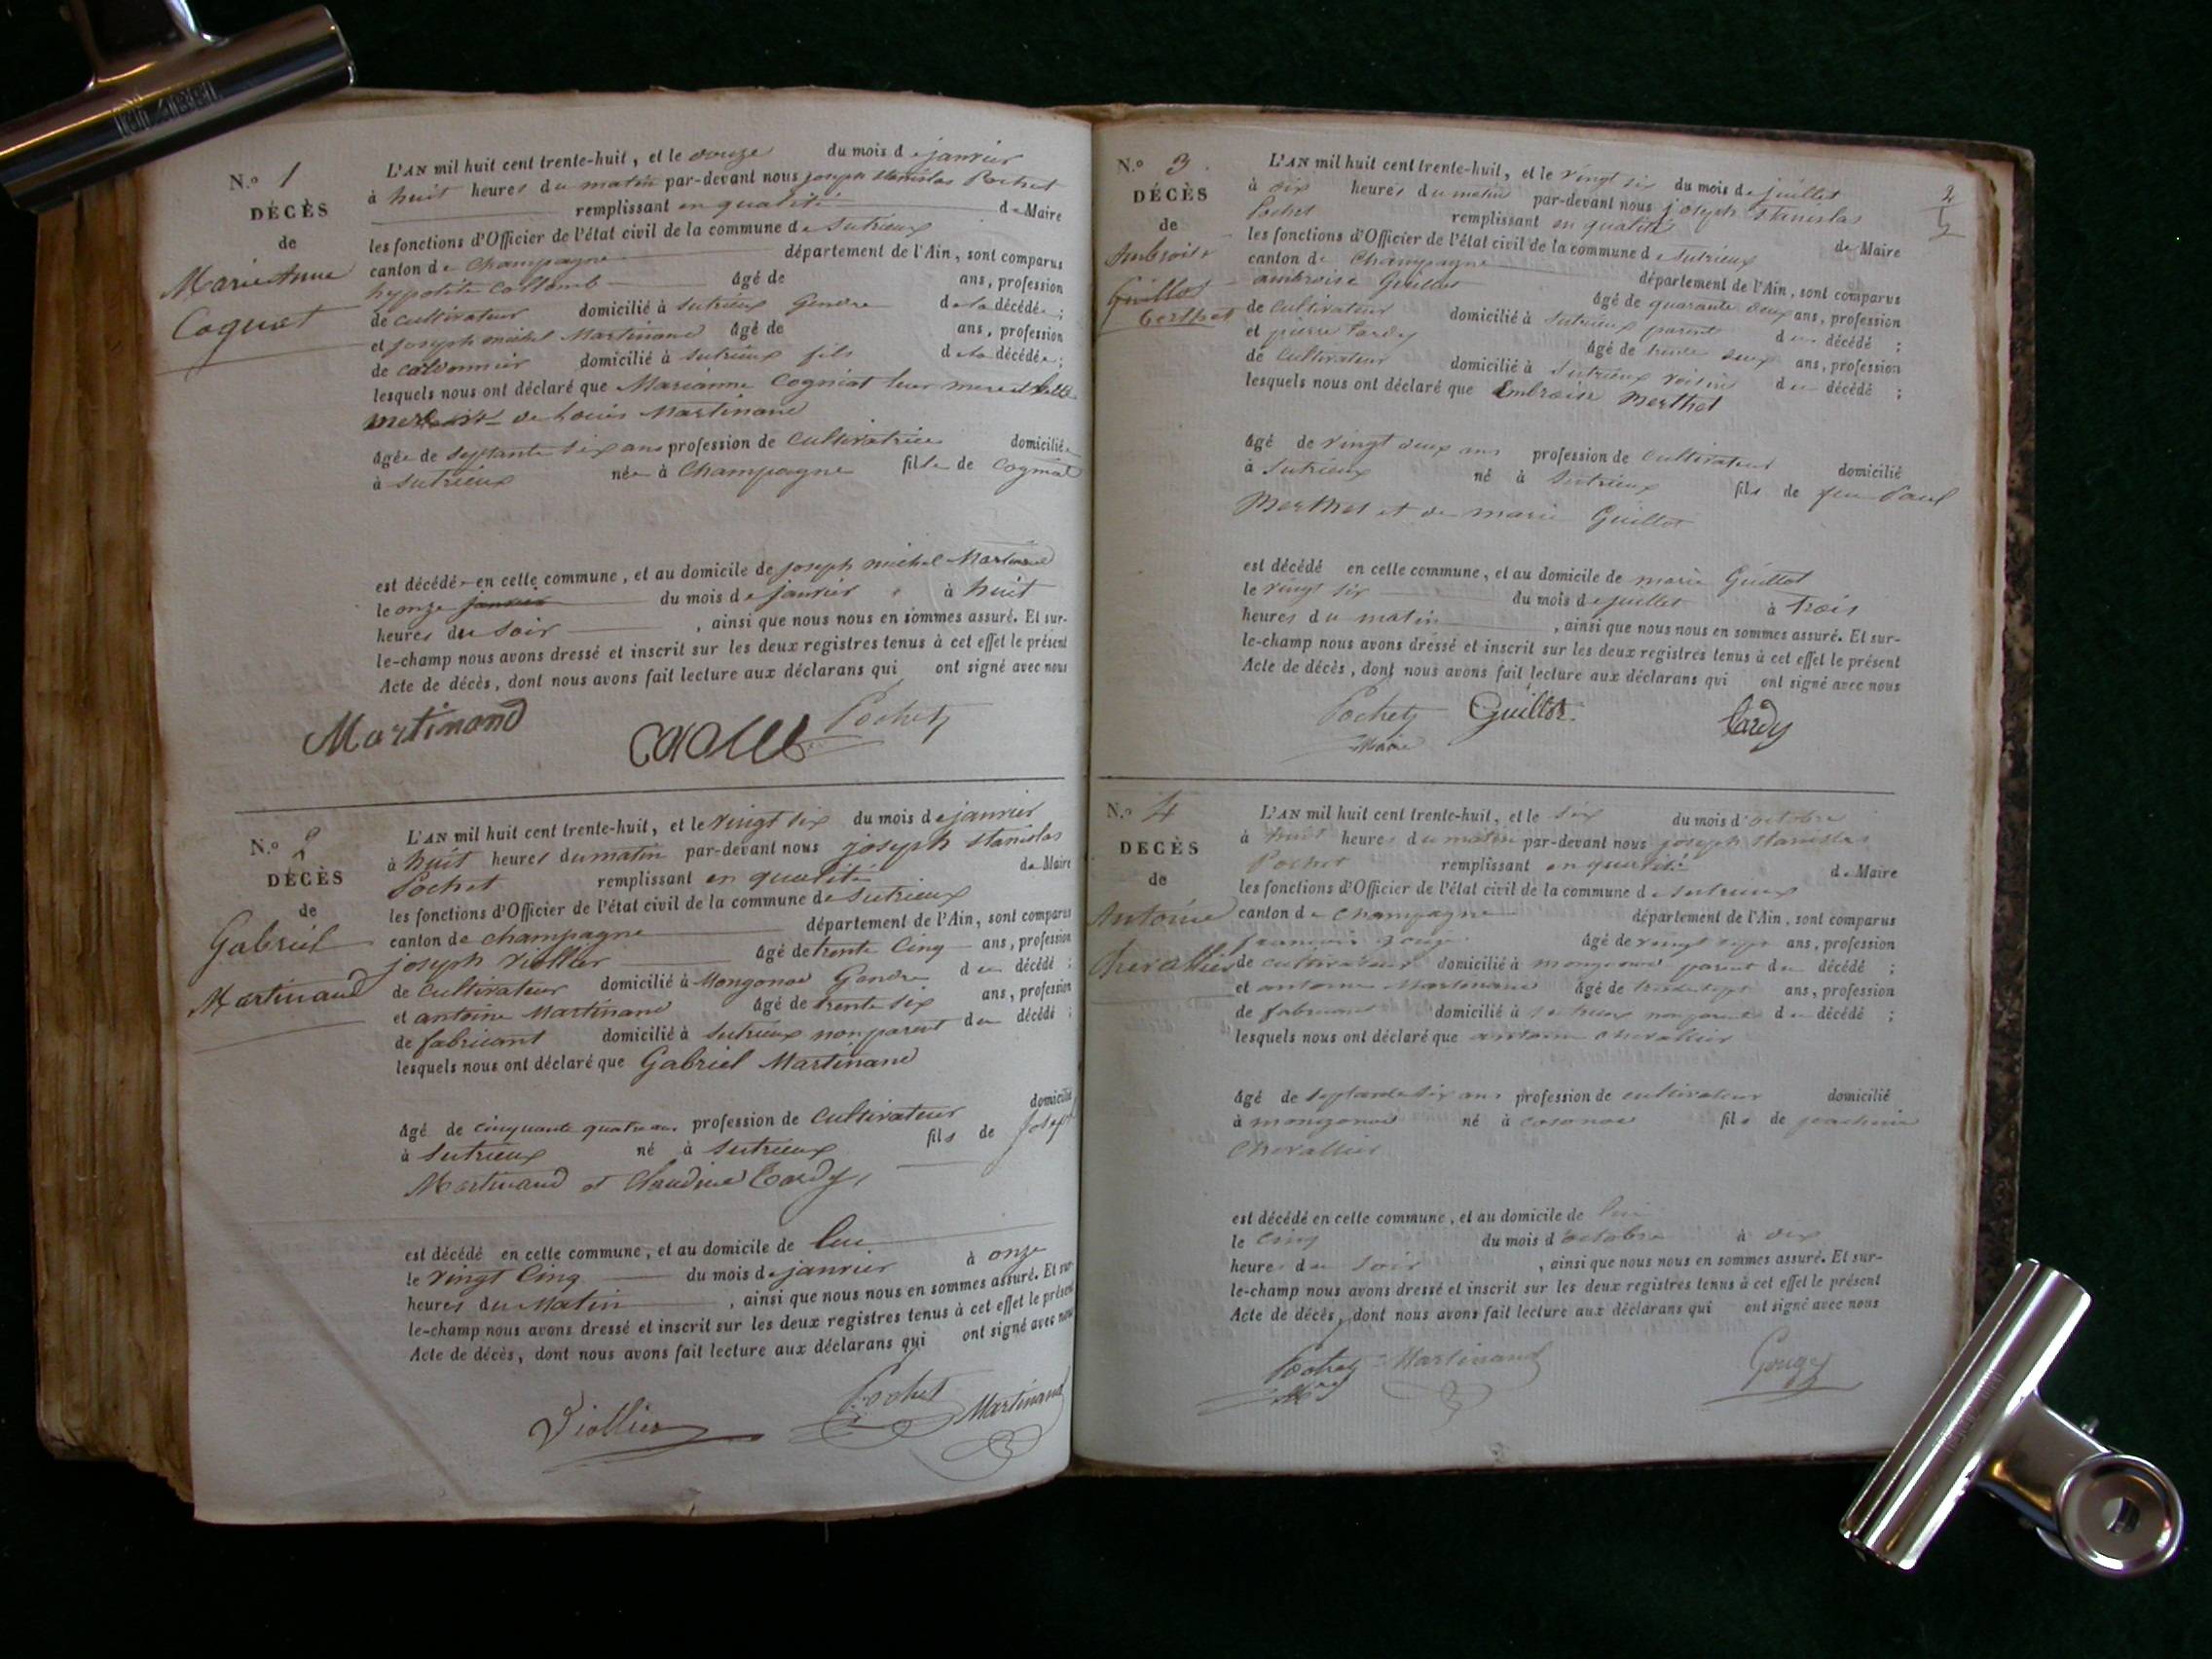 N.º 1
DÉCÈS
de
Marie Anne
Cognat
L'AN mil huit cent trente-huit, et le douze du mois de janvier
à huit heures du matin par-devant nous joseph stanislas Pochet
remplissant en qualité de Maire
les fonctions d'Officier de l'état civil de la commune de Sutrieux
canton de Champagne département de l'Ain, sont comparus
hypolite Collomb âgé de ans, profession
de cultivateur domicilié à Sutrieux Gendre de la décédée ;
et joseph michel Martinand âgé de ans, profession
de domicilié à Sutrieux fils de la décédée ;
lesquels nous ont déclaré que Marianne Cogniat leur mere et belle
mere de Louis Martinand
âgée de septante six ans profession de Cultivatrice domiciliée
à Sutrieux née à Champagne fille de Cogniat
est décédée en cette commune, et au domicile de joseph michel Martinand
le onze janvier du mois de janvier à huit
heures du soir , ainsi que nous nous en sommes assuré. Et sur-
le-champ nous avons dressé et inscrit sur les deux registres tenus à cet effet le présent
Acte de décès, dont nous avons fait lecture aux déclarans qui ont signé avec nous
Martinand Pochet
N.º 2
DÉCÈS
de
Gabriel
Martinand
L'AN mil huit cent trente-huit, et le vingt six du mois de janvier
à huit heures du matin par-devant nous joseph stanislas
Pochet remplissant en qualité de Maire
les fonctions d'Officier de l'état civil de la commune de Sutrieux
canton de champagne département de l'Ain, sont comparus
joseph Viollier âgé de trente Cinq ans, profession
de Cultivateur domicilié à Mongonod Gendre du décédé ;
et antoine Martinand âgé de trente six ans, profession
de fabricant domicilié à Sutrieux non parent du décédé ;
lesquels nous ont déclaré que Gabriel Martinand
âgé de cinquante quatre ans profession de Cultivateur domicilié
à Sutrieux né à Sutrieux fils de Joseph
Martinand et Claudine Tardy,
est décédé en cette commune, et au domicile de lui
le vingt Cinq du mois de janvier à onze
heures du Matin , ainsi que nous nous en sommes assuré. Et sur-
le-champ nous avons dressé et inscrit sur les deux registres tenus à cet effet le présent
Acte de décès, dont nous avons fait lecture aux déclarans qui ont signé avec nous
Viollier Pochet Martinand
N.º 3
DÉCÈS
de
Ambroise
Guillot
Berthet
L'AN mil huit cent trente-huit, et le vingt six du mois de juillet
à dix heures du matin par-devant nous joseph Stanislas
Pochet remplissant en qualité de Maire
les fonctions d'Officier de l'état civil de la commune de Sutrieux
canton de Champagne département de l'Ain, sont comparus
ambroise Guillot âgé de quarante deux ans, profession
de Cultivateur domicilié à Sutrieux parent du décédé ;
et pierre Tardy âgé de trente deux ans, profession
de Cultivateur domicilié à Sutrieux voisin du décédé ;
lesquels nous ont déclaré que Embroise Merthet
âgé de vingt deux ans profession de Cultivateur domicilié
à Sutrieux né à Sutrieux fils de feu Paul
Merthet et de marie Guillot
est décédé en cette commune, et au domicile de marie Guillot
le vingt six du mois de juillet à trois
heures du matin , ainsi que nous nous en sommes assuré. Et sur-
le-champ nous avons dressé et inscrit sur les deux registres tenus à cet effet le présent
Acte de décès, dont nous avons fait lecture aux déclarans qui ont signé avec nous
Pochet Guillot Tardy
Maire
N.º 4
DECÈS
de
Antoine
Chevallier
L'AN mil huit cent trente-huit, et le six du mois d'octobre
à huit heures du matin par-devant nous joseph Stanislas
Pochet remplissant en qualité de Maire
les fonctions d'Officier de l'état civil de la commune de Sutrieux
canton de Champagne département de l'Ain, sont comparus
francois Gouge âgé de vingt sept ans, profession
de cultivateur domicilié à mongonod parent du décédé ;
et antoine Martinand âgé de trente sept ans, profession
de fabricant domicilié à Sutrieux non parent du décédé ;
lesquels nous ont déclaré que antoine chevallier
âgé de septante six ans profession de cultivateur domicilié
à mongonod né à fils de joachim
Chevallier
est décédé en cette commune, et au domicile de lui
le Cinq du mois d'octobre à dix
heures du soir , ainsi que nous nous en sommes assuré. Et sur-
le-champ nous avons dressé et inscrit sur les deux registres tenus à cet effet le présent
Acte de décès, dont nous avons fait lecture aux déclarans qui ont signé avec nous
Pochet Martinand Gouge